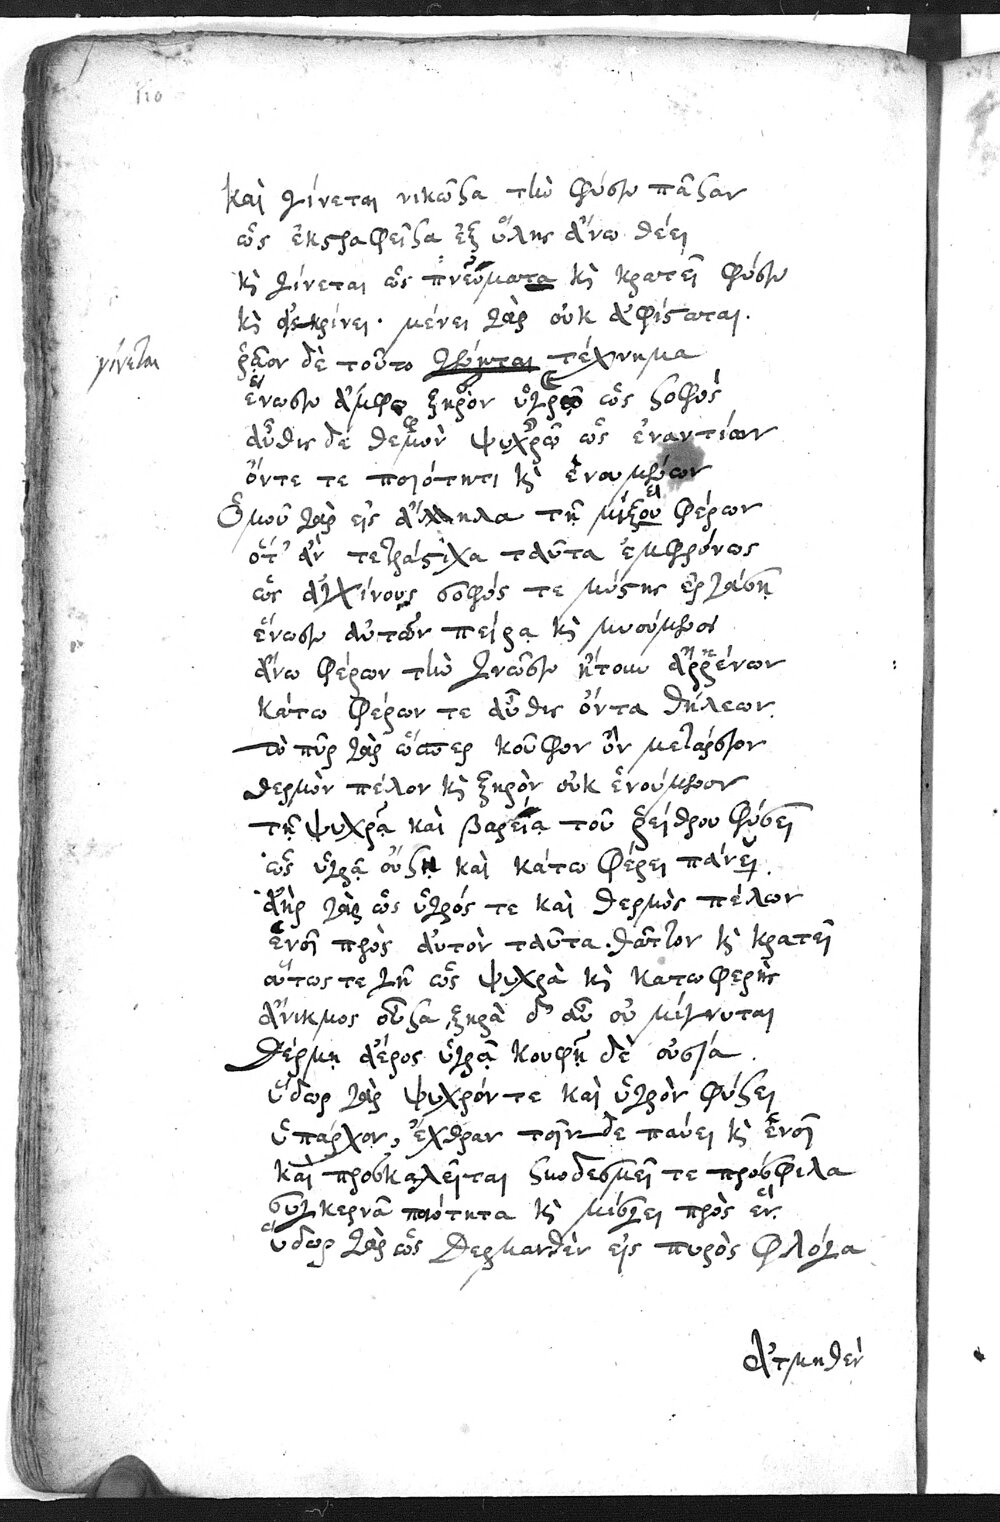 110
καὶ γίνεται νικῶσα τὴν φύσιν πᾶσαν
ὡς ἐκστραφεῖσα ἐξ ὕλης ἄνω θέει
κὶ γίνεται ὡς πνεύματα κὶ κρατεῖ φύσιν
κὶ μένει γὰρ οὐκ ἀφίσταται.
γίνεται
ῥᾷον δὲ τοῦτο τέχνημα
ἕνωσιν ἄμφω ξηρὸν ὑγρῷ ὡς σοφὸς
αὖθις δὲ θερμὸν ψυχρῷ ὡς ἐναντίων
ὄντε τε ποιότητι κὶ ἑνουμένων
Ὁμοῦ γὰρ εἰς ἄλληλα τῇ μίξει φέρων
ὅτ' ἂν τετράστιχα ταῦτα ἐμφρόνως
ὡς ἀγχίνους σοφός τε μύστης ἐργάσῃ
ἕνωσιν αὐτῶν πείρᾳ κὶ μυούμενοι
ἄνω φέρων τὴν γνῶσιν ἤτοιν ἀρρένων
κάτω φέρων τε αὖθις ὄντα θήλεων
τὸ πῦρ γὰρ ὥσπερ κοῦφον ὂν μετάρσιον
θερμὸν πέλον κὶ ξηρὸν οὐκ ἑνούμενον
τῇ ψυχρᾷ καὶ βαρείᾳ τοῦ ῥείθρου φύσει
ὡς ὑγρᾷ οὔσῃ καὶ κάτω φέρει
ἀὴρ γὰρ ὡς ὑγρός τε καὶ θερμὸς πέλων
ἑνοῖ πρὸς αὐτὸν ταῦτα θᾶττον κὶ κρατεῖ
οὕτως τε γῆ ὡς ψυχρὰ κὶ κατωφερὴς
ἄνικμος οὖσα ξηρὰ δ' αὖ οὐ μίγνυται
θέρμῃ ἀέρος ὑγρᾷ κουφῇ δὲ οὐσίᾳ.
ὕδωρ γὰρ ψυχρόν τε καὶ ὑγρὸν φύσει
ὑπάρχον, ἔχθραν τοῖν δε παύει κὶ ἑνοῖ
καὶ προσκαλεῖται συνδεσμεῖ τε πρόσφιλα
συγκερνᾷ ποιότητα κὶ μίσγει πρὸς ἕν.
ὕδωρ γὰρ ὡς θερμανθὲν εἰς πυρὸς φλόγα
ἀτμηθὲν